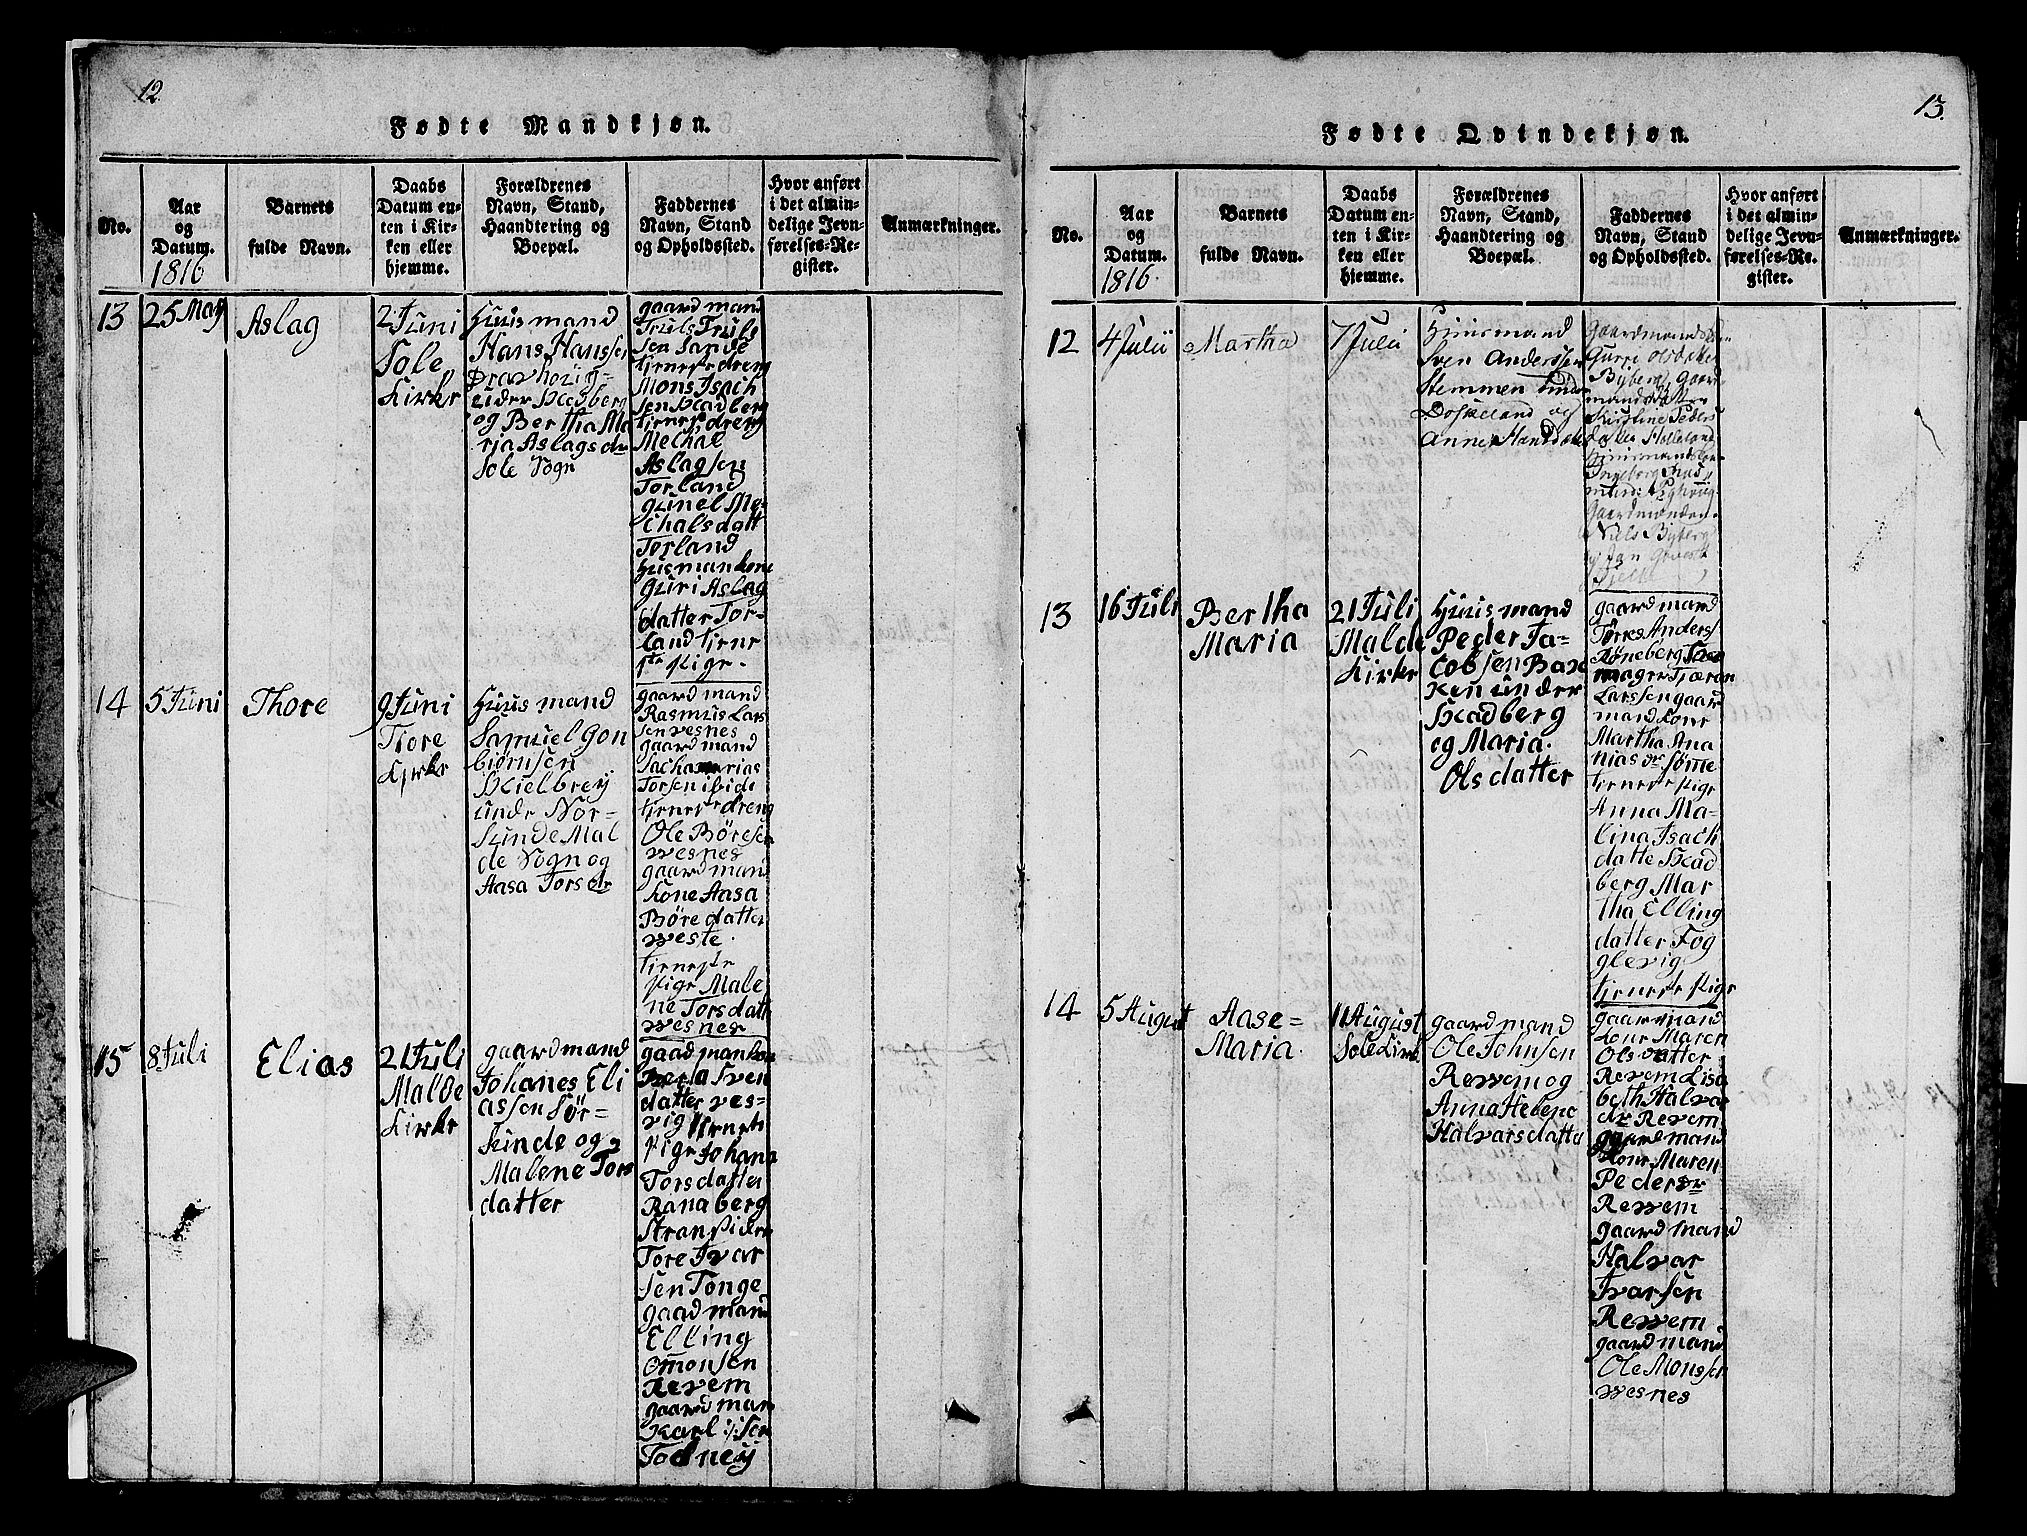 12.
Fødte Mandkjøn.
No.
Aar
og
Datum.
1816
Barnets
fulde Navn.
Daabs
Datum en-
ten i Kir-
ken eller
hjemme.
Forældrenes
Navn, Stand,
Haandtering og
Boepæl.
Faddernes
Navn, Stand
og Opholdssted.
Hvor anført
i det almin-
delige Jevn-
førelses-Re-
gister.
Anmærkninger.
13
25 May
Aslag
2 Juni
Sole
Kirke
Huusmand
Hans Hanssen
under Skadberg
og Bertha Ma
ria Aslags dr
Sole Sogn
gaardmand
Truls Truls
sen Sande
tjeneste dreng
Mons Isach
sen Skadberg
tjeneste dreng
Mechal
Aslagsen
Torland
Gunel Me-
chalsdatt
Torland
Husmankone
Guri Aslag
datter Tor-
land tjene
ste Pige.
14
5 Juni
Thore
9 Juni
Tiore
Kirke
Huusmand
Samuel Gon
biørnsen
Skielbrey
under Nor-
Sunde Mal
de Sogn og
Aasa Torsdr
gaardmand
Rasmus Lars
sen Vesnes
gaardmand
Sacharias
Torsen ibide
tjeneste dreng
Ole Børesen
Vesnes
gaardmand
Kone Aasa
Børe datter
Veste.
tjeneste
Pige Male
ne Torsdatt
Vesnes
15
8 Juli
Elias
21 Juli
Malde
Kirke
gaardmand
Johanes Eli
assen Sør-
Sunde og
Malene Tors
datter
gaadmankone
Berta Sven
datter Ves-
vig tienest
Pige Johana
Torsdatter
Ranaberg
Stransidere
Tore Ivar
sen Tonge
gaadmand
Elling
Omonsen
Revem
gaardman
Karl :/: Sen
Todney
13.
Fødte Qvindekjøn.
No.
Aar
og
Datum.
1816.
Barnets
fulde Navn.
Daabs
Datum en-
ten i Kir-
ken eller
hjemme.
Forældrenes
Navn, Stand,
Haandtering og
Boepæl.
Faddernes
Navn, Stand
og Opholdssted.
Hvor anført
i det almin-
delige Jevn-
førelses-Re-
gister.
Anmærkninger.
12
4 Julii
Martha
7 Julii
Huusmand
Sven Anderssen
Stemmen under
Doskeland og
Anne Hansdatter
Gurri Olsdatter
Byberg, Gaard
Kirstine Peders
datter Helleland
Ingeborg
Gaardmænden
Niels Byberg
og Jan
13
16 Juli
Bertha
Maria
21 Juli
Malde
Kirke
Huusmand
Peder Ja-
cobsen Bax
Ken under
Skadberg
og Maria.
Olsdatter
gaardmand
Tørres Anders
Røneberg
mager Tjæran
Larssen gaard
mand Kone
Martha Ana
nias dr Sømme
tjeneste Pige
Anna Ma-
lina Isach
datte Skad
berg Mar
tha Elling
datter Fog
glevig
tjeneste Pige
14
5 August
Aase=
Maria.
11 August
Sole Kirke
gaardmand
Ole Johnsen
Revem og
Anna Helene
Halvarsdatte
gaardmand
Kone Maren
Olsdatter
Revem Lisa
beth Halvar
dr Revem
gaardmand
Kone Maren
Pedersdr
Revem
gaardmand
Halvar
Ivarsen
Revem
gaardmand
Ole Monssen
Vesnes